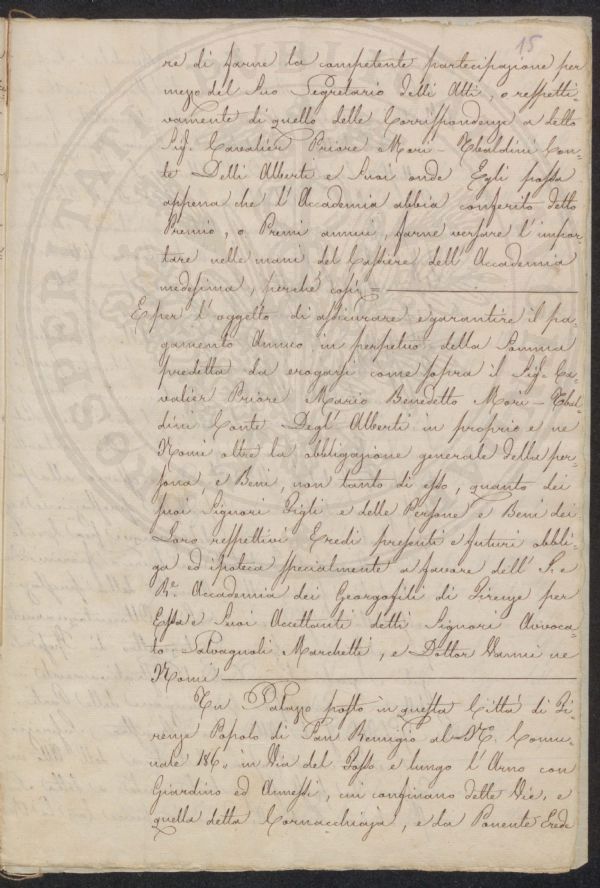 15
re di farne la competente partecipazione per
mezo del Suo Segretario delli Atti, o respetti-
vamente di quello delle Corrispondenze a detto
Sig.r Cavalier Priore Mori-Ubaldini Con-
te Delli Alberti e Suoi onde Egli possa
appena che l'Accademia abbia conferito detto
Premio, o Premi annui, farne versare l'impor-
tare nelle mani del Cassiere dell'Accademia
medesima, perchè così =
E per l'oggetto di assicurare e garantire il pa-
gamento Annuo in perpetuo della Somma
predetta da erogarsi come sopra il Sig.r Ca-
valier Priore Mario Benedetto Mori-Ubal-
dini Conte Degl'Alberti in proprio e ne
Nomi oltre la obbligazione generale della per-
sona, e Beni, non tanto di esso, quanto dei
suoi Signori Figli e delle Persone e Beni dei
Loro respettivi Eredi presenti e futuri obbli-
ga ed ipoteca specialmente a favore dell'I. e
R.e Accademia dei Georgofili di Firenze per
Essa e Suoi Accettanti detti Signori Avvoca-
to Salvagnoli Marchetti, e Dottor Vanni ne
Nomi
Un Palazzo posto in questa Città di Fi-
renze Popolo di San Remigio al N.o Comu-
nale 186. in Via del Fosso e lungo l'Arno con
Giardino ed Annessi, cui confinano dette Vie, e
quella detta Cornacchiaja, e da Ponente Erede